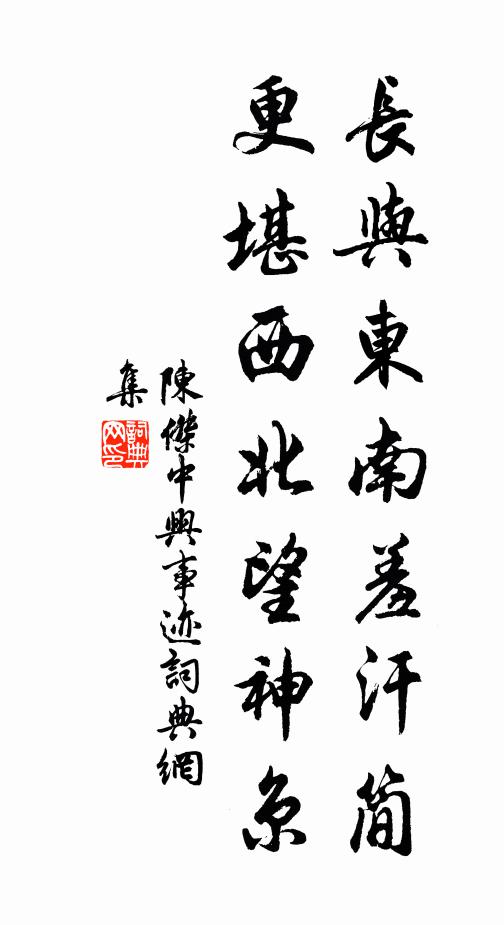 長與東南羞汗簡
更堪西北望神京
陳傑中興事迹詞典網
集
詞典網印